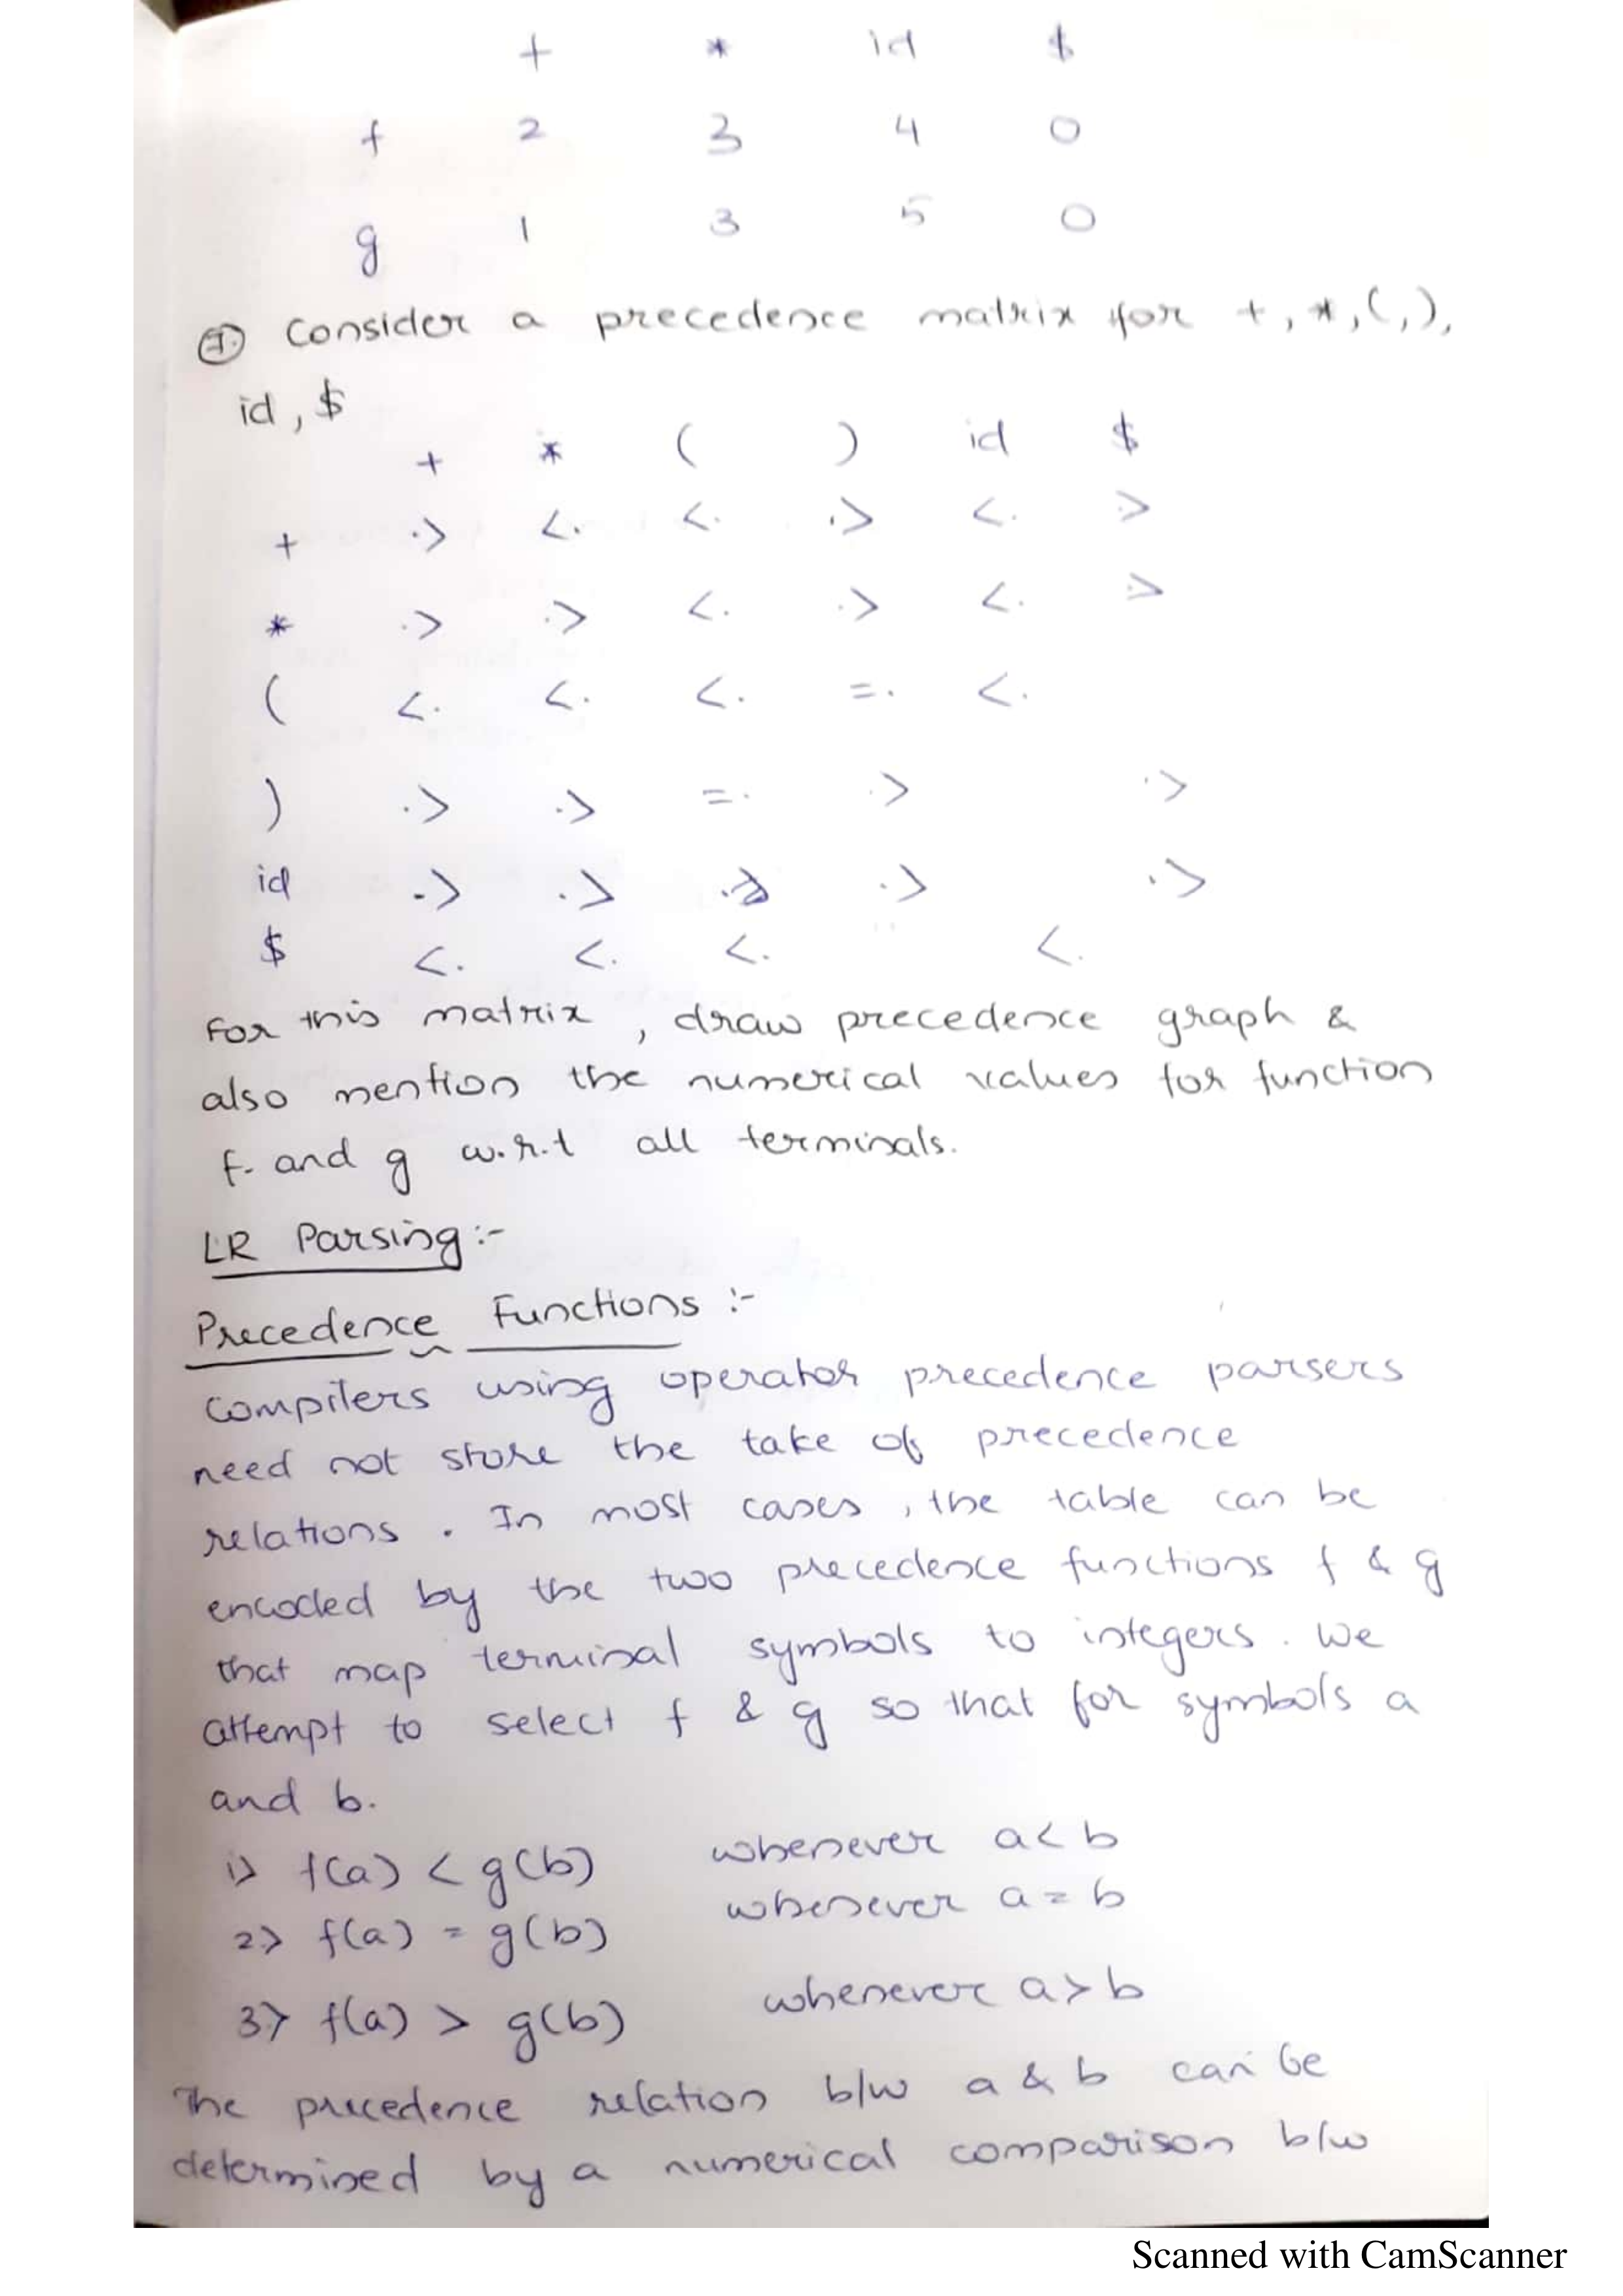 + * id $
f 2 3 4 0
g 1 3 5 0
Consider a precedence matrix for +, *, (, ),
id, $
+ * ( ) id $
+ .> <. <. .> <. .>
* .> .> <. .> <. .>
( <. <. <. =. <.
) .> .> =. .> .>
id .> .> .> .>
$ <. <. <. <.
For this matrix, draw precedence graph &
also mention the numerical values for function
f. and g w.r.t all terminals.
LR Parsing :-
Precedence Functions :-
compilers using operator precedence parsers
need not store the take of precedence
relations. In most cases, the table can be
encoded by the two precedence functions f & g
that map terminal symbols to integers. We
attempt to select f & g so that for symbols a
and b.
1> f(a) < g(b) whenever a < b
2> f(a) = g(b) whenever a = b
3> f(a) > g(b) whenever a > b
The precedence relation b/w a & b can be
determined by a numerical comparison b/w
Scanned with CamScanner